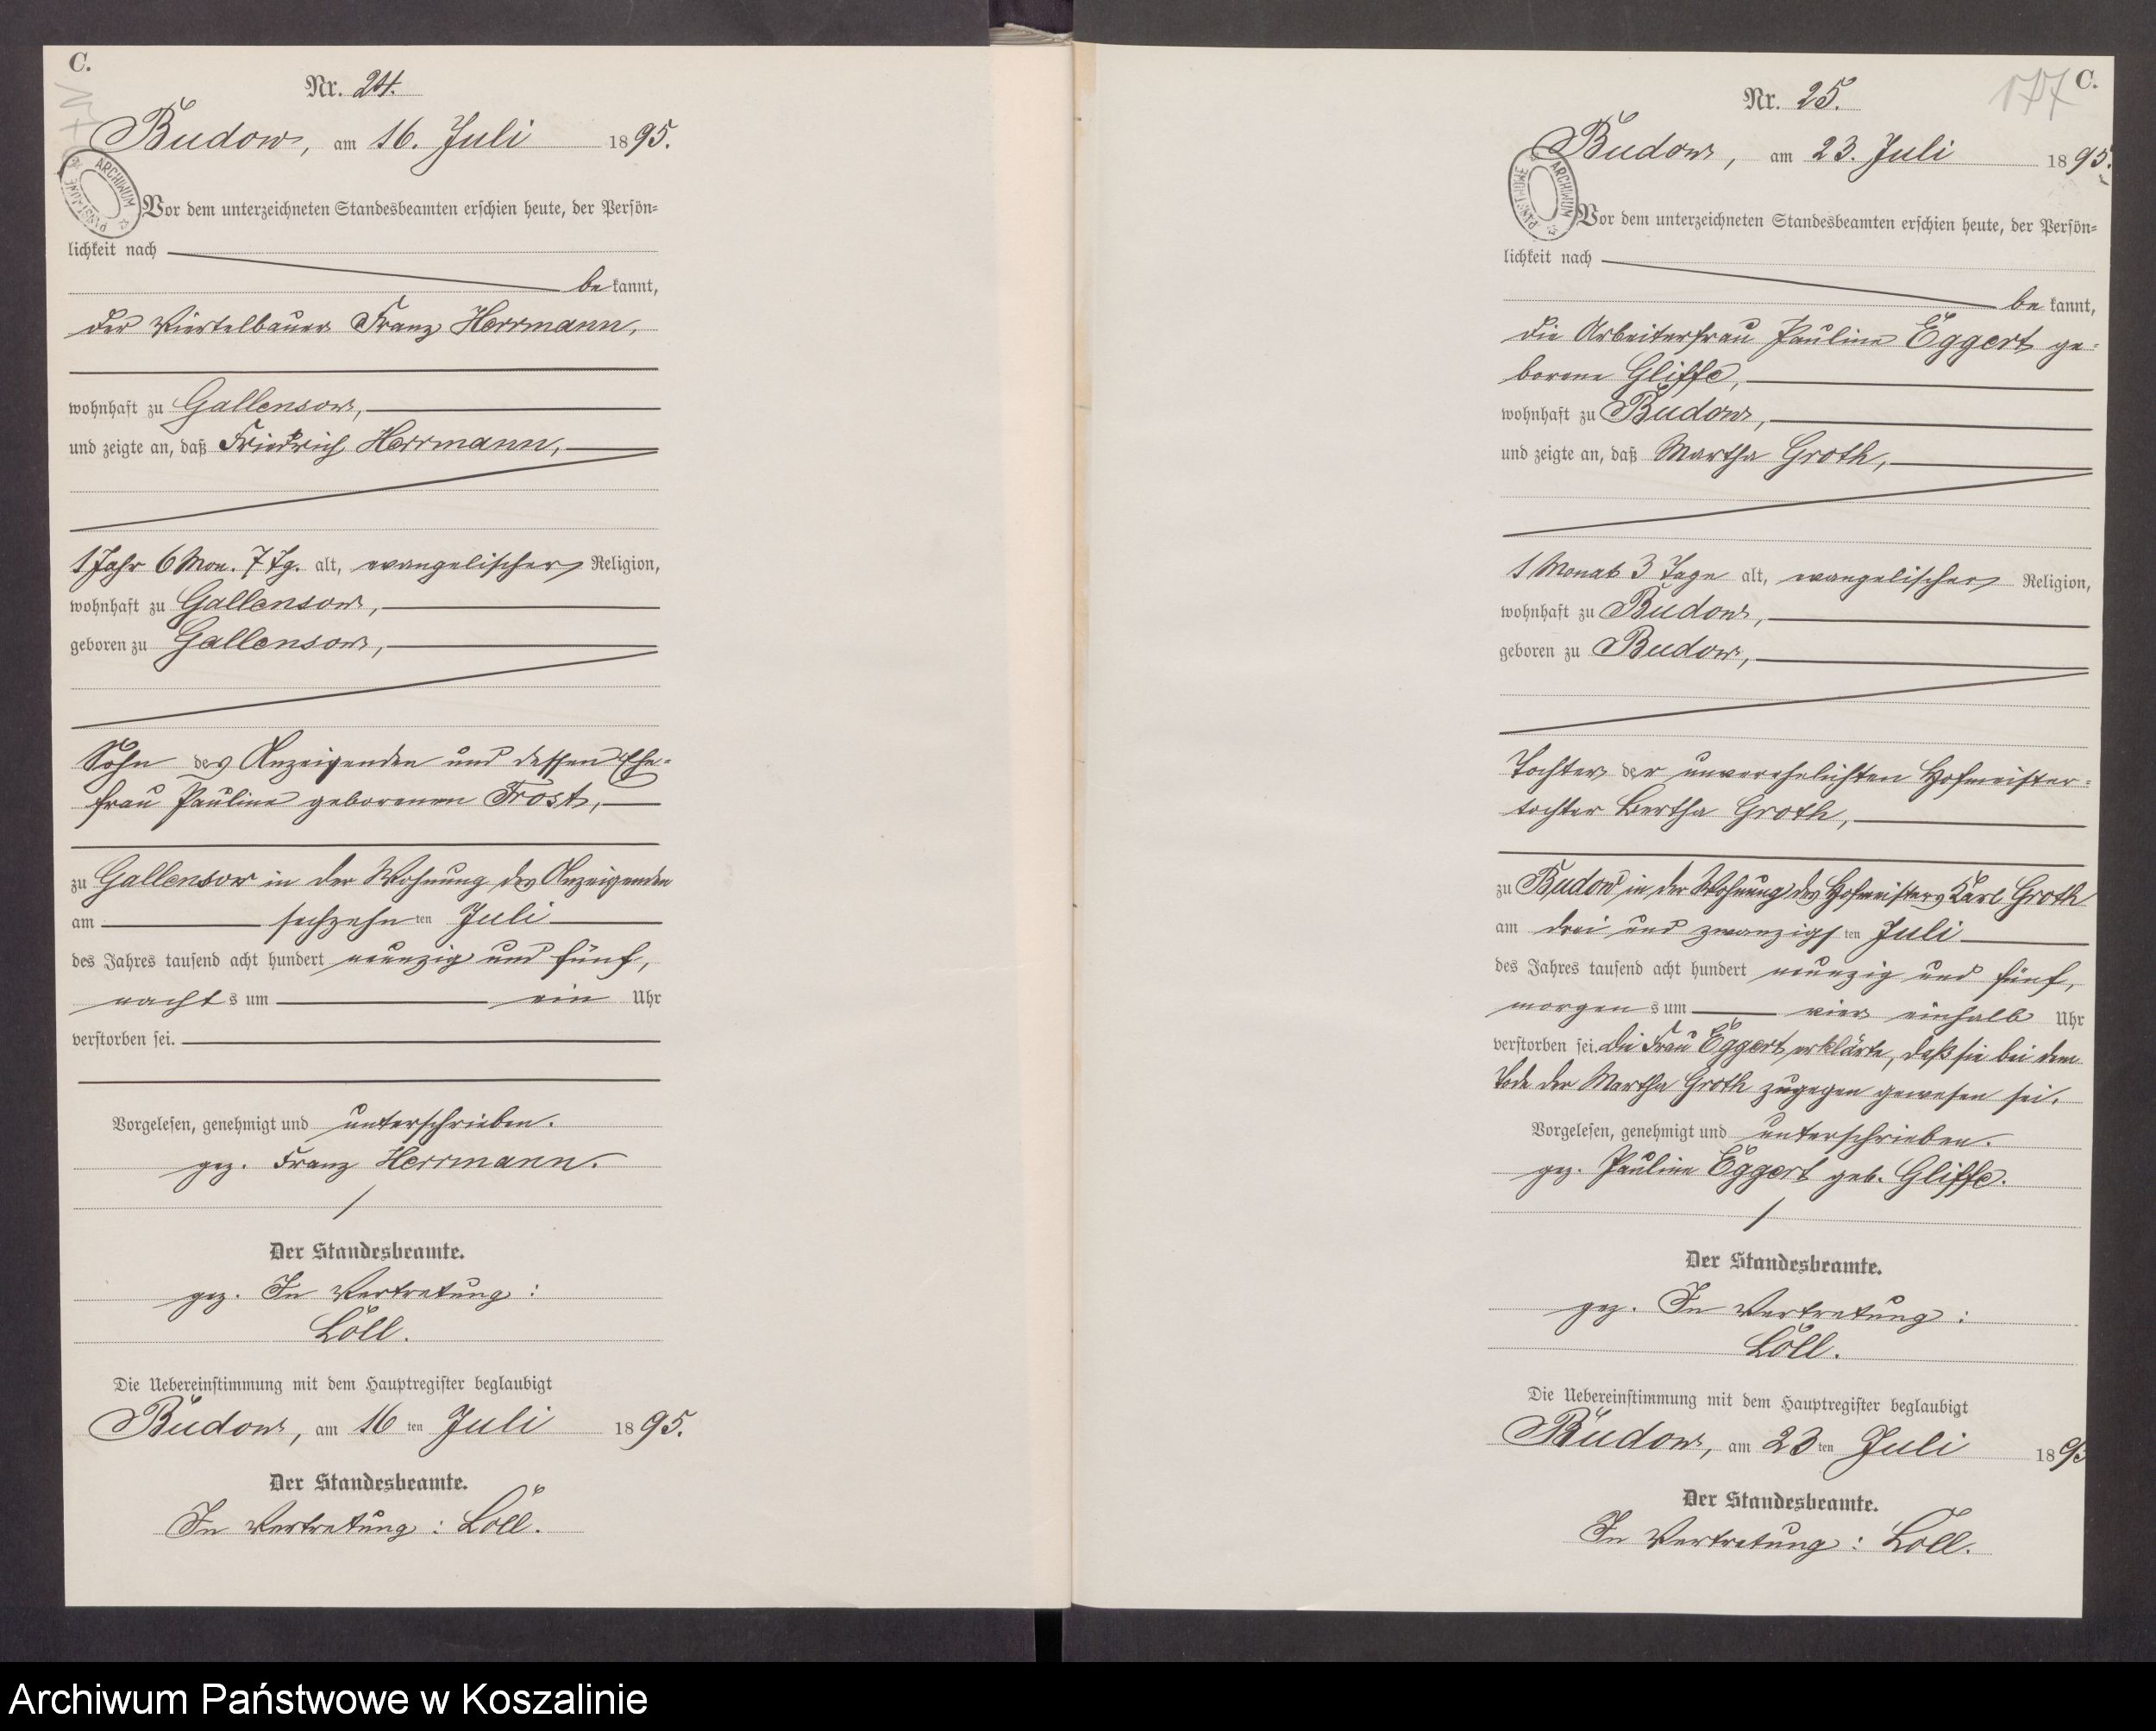 C.
Nr. 24.
Budow, am 16. Juli 1895.
ARCHIWUM PAŃSTWOWE
Vor dem unterzeichneten Standesbeamten erschien heute, der Persön-
lichkeit nach
bekannt,
der Viertelbauer Franz Herrmann,
wohnhaft zu Gallensow,
und zeigte an, daß Friedrich Herrmann,
1 Jahr 6 Mon. 7 Tg. alt, evangelischer Religion,
wohnhaft zu Gallensow,
geboren zu Gallensow,
Sohn des Anzeigenden und dessen Ehe-
frau Pauline geborenen Frost,
zu Gallensow in der Wohnung des Anzeigenden
am sechzehnten Juli
des Jahres tausend acht hundert neunzig und fünf,
nachts um ein Uhr
verstorben sei.
Vorgelesen, genehmigt und unterschrieben.
gez. Franz Herrmann.
Der Standesbeamte.
gez. In Vertretung:
Löll.
Die Uebereinstimmung mit dem Hauptregister beglaubigt
Budow, am 16ten Juli 1895.
Der Standesbeamte.
In Vertretung: Löll.
177 C.
Nr. 25.
Budow, am 23. Juli 1895.
ARCHIWUM PAŃSTWOWE
Vor dem unterzeichneten Standesbeamten erschien heute, der Persön-
lichkeit nach
bekannt,
die Arbeiterfrau Pauline Eggert ge-
borene Gliffe,
wohnhaft zu Budow,
und zeigte an, daß Martha Groth,
1 Monat 3 Tage alt, evangelischer Religion,
wohnhaft zu Budow,
geboren zu Budow,
Tochter der unverehelichten Hofmeister-
tochter Bertha Groth,
zu Budow in der Wohnung des Hofmeisters Karl Groth
am drei und zwanzigsten Juli
des Jahres tausend acht hundert neunzig und fünf,
morgens um vier einhalb Uhr
verstorben sei. Die Frau Eggert erklärte, daß sie bei dem
Tode der Martha Groth zugegen gewesen sei.
Vorgelesen, genehmigt und unterschrieben.
gez. Pauline Eggert geb. Gliffe.
Der Standesbeamte.
gez. In Vertretung:
Löll.
Die Uebereinstimmung mit dem Hauptregister beglaubigt
Budow, am 23ten Juli 1895
Der Standesbeamte.
In Vertretung: Löll.
Archiwum Państwowe w Koszalinie